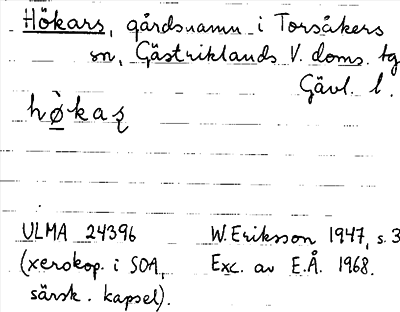 Hökars, gårdsnamn i Torsåkers
sn, Gästriklands V. doms. tg
Gävl. l.
hö̀kaʂ
ULMA 24396 W. Eriksson 1947, s. 3
(xerokop. i SOA, Exc. av E.Å. 1968.
särsk. kapsel).